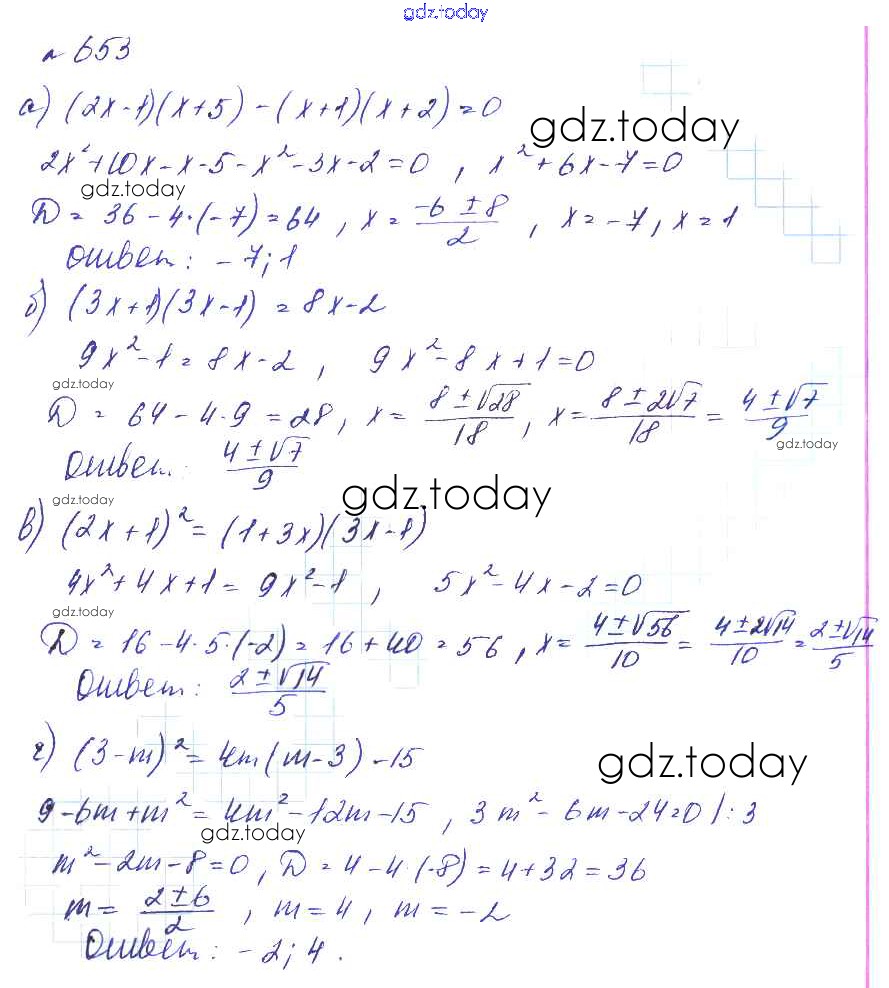 gdz.today
№ 653
а) (2x-1)(x+5)-(x+1)(x+2)=0
gdz.today
2x²+10x-x-5-x²-3x-2=0, x²+6x-7=0
gdz.today
D = 36-4·(-7)=64, x = (-6±8)/2, x=-7, x=1
Ответ: -7; 1
б) (3x+1)(3x-1) = 8x-2
9x²-1=8x-2, 9x²-8x+1=0
gdz.today
D = 64-4·9=28, x= (8±√28)/18, x= (8±2√7)/18 = (4±√7)/9
gdz.today
Ответ: (4±√7)/9
gdz.today
gdz.today
в) (2x+1)²=(1+3x)(3x-1)
4x²+4x+1= 9x²-1, 5x²-4x-2=0
gdz.today
D = 16-4·5·(-2)=16+40=56, x= (4±√56)/10 = (4±2√14)/10 = (2±√14)/5
Ответ: (2±√14)/5
г) (3-m)²=4m(m-3)-15
gdz.today
9-6m+m²=4m²-12m-15, 3m²-6m-24=0 |:3
gdz.today
m²-2m-8=0, D=4-4·(-8)=4+32=36
m= (2±6)/2, m=4, m=-2
Ответ: -2; 4.